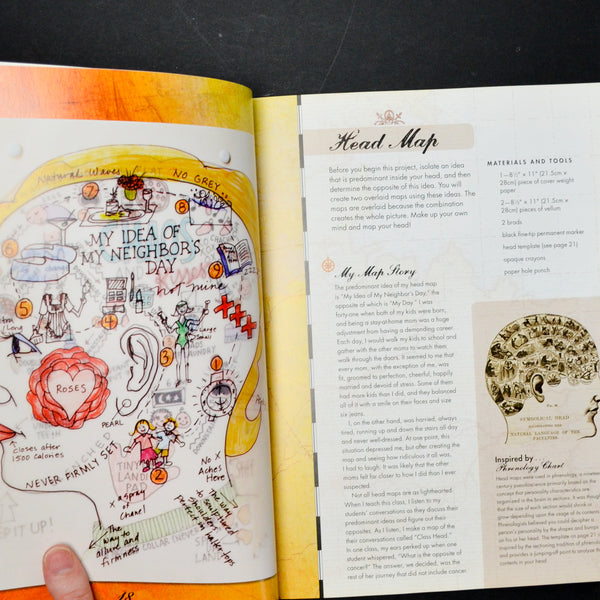 Natural Waves
NO GREY
7
8
6
9
MY IDEA OF
MY NEIGHBOR'S
DAY
not mine
5
4
3
1
2
ROSES
PEARL
closes after
1500 Calories
NEVER FIRMLY SET
TINY
LAND
PAD
x a spray
chanel
No x
Aches
Here
The
way to
allure and
firmness
COLLAR
18
Head Map
Before you begin this project, isolate an idea
that is predominant inside your head, and then
determine the opposite of this idea. You will
create two overlaid maps using these ideas. The
maps are overlaid because the combination
creates the whole picture. Make up your own
mind and map your head!
My Map Story
The predominant idea of my head map
is "My Idea of My Neighbor's Day," the
opposite of which is "My Day." I was
forty-one when both of my kids were born,
and being a stay-at-home mom was a huge
adjustment from having a demanding career.
Each day, I would walk my kids to school and
gather with the other moms to watch them
walk through the doors. It seemed to me that
every mom, with the exception of me, was
fit, groomed to perfection, cheerful, happily
married and devoid of stress. Some of them
had more kids than I did, and they balanced
all of it with a smile on their faces and size
six jeans.
I, on the other hand, was harried, always
tired, running up and down the stairs all day
and never well-dressed. At one point, this
situation depressed me, but after creating the
map and seeing how ridiculous it all was,
I had to laugh. It was likely that the other
moms felt far closer to how I did than I ever
suspected.
Not all head maps are as lighthearted.
When I teach this class, I listen to my
students' conversations as they discuss their
predominant ideas and figure out their
opposites. As I listen, I make a map of the
conversations called "Class Head."
In one class, my ears perked up when one
student whispered, "What is the opposite of
cancer?" The answer, we decided, was the
rest of her journey that did not include cancer.
MATERIALS AND TOOLS
1—8½" × 11" (21.5cm x
28cm) piece of cover weight
paper
2—8½" × 11" (21.5cm x
28cm) pieces of vellum
2 brads
black fine-tip permanent marker
head template (see page 21)
opaque crayons
paper hole punch
SYMBOLICAL HEAD
NATURAL LANGUAGE OF THE
FACULTIES.
Inspired by...
Phrenology Chart
Head maps were used in phrenology, a nineteenth-
century pseudoscience primarily based on the
concept that personality characteristics are
organized in the brain in sections. It was thought
that the use of each section would shrink or
grow depending upon the usage of its contents.
Phrenologists believed you could decipher a
person's personality by the shapes and bumps
on his or her head. The template on page 21 is
inspired by the sectioning tradition of phrenology
and provides a jumping-off point to analyze the
contents in your head.